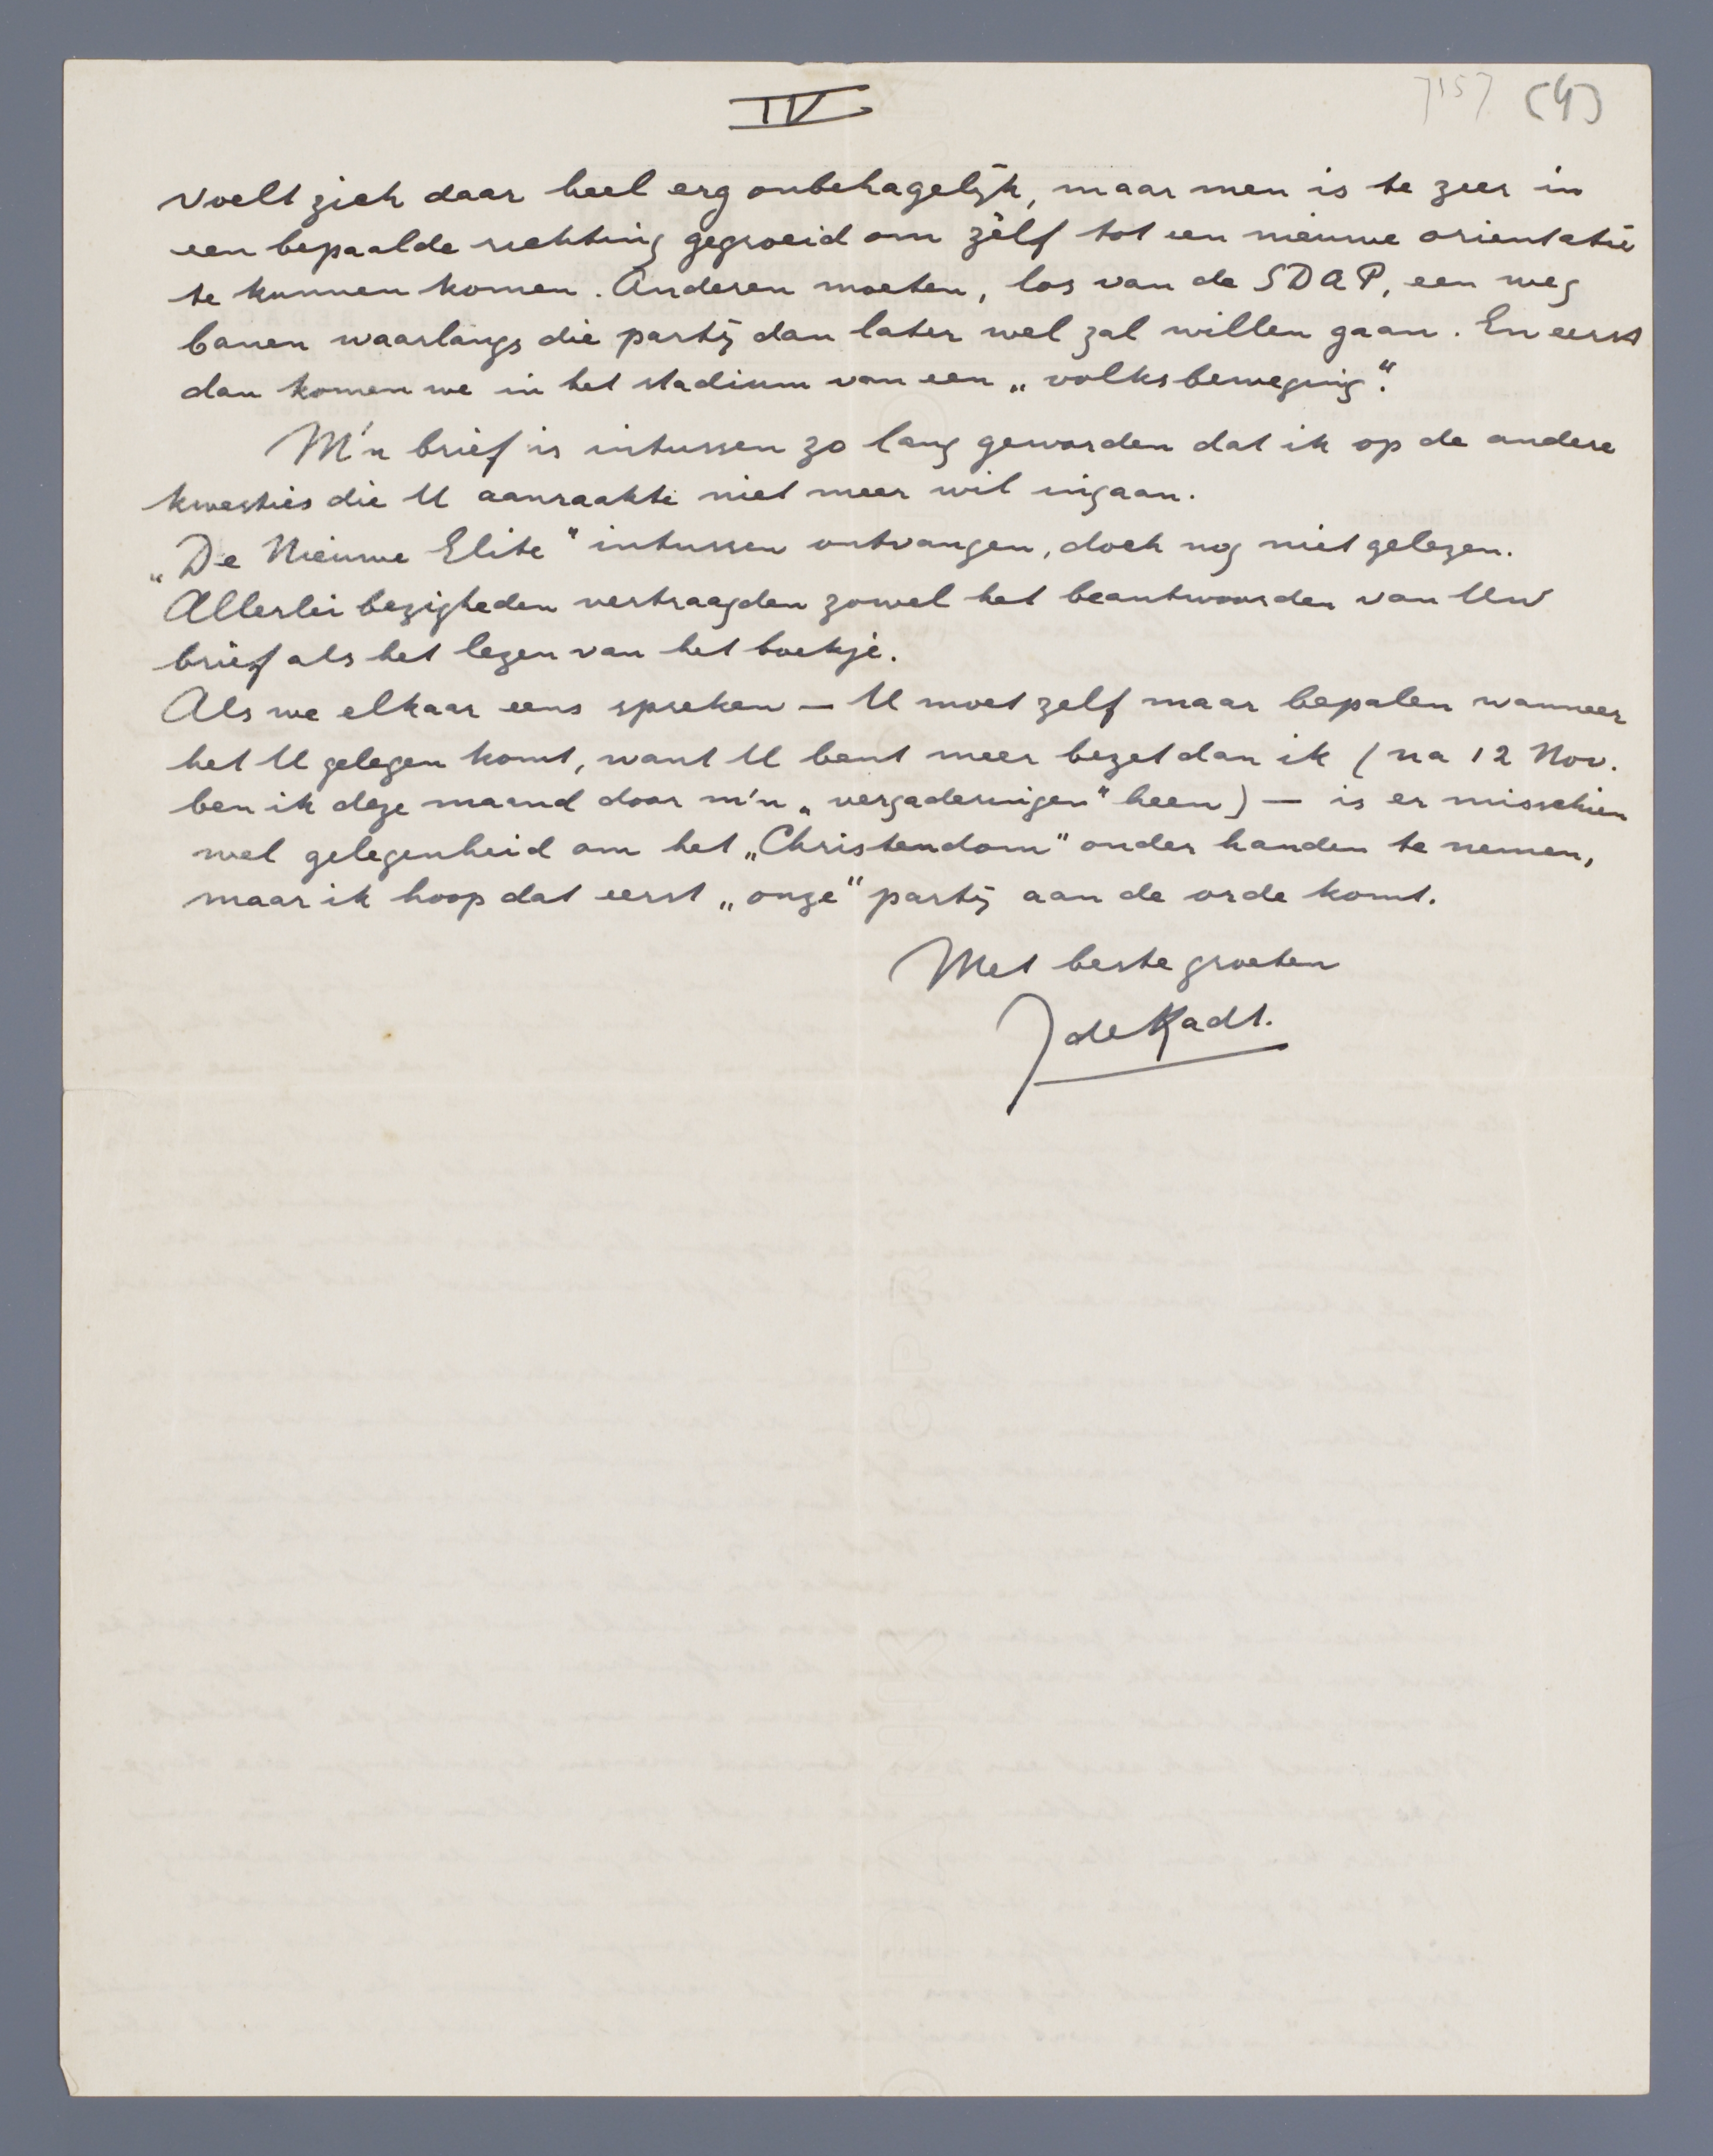 IV
7157 (4)
voelt zich daar heel erg onbehagelijk, maar men is te zeer in
een bepaalde richting gegroeid om zèlf tot een nieuwe orientatie
te kunnen komen. Anderen moeten, los van de SDAP, een weg
banen waarlangs die partij dan later wel zal willen gaan. En eerst
dan komen we in het stadium van een „volksbeweging".
M'n brief is intussen zo lang geworden dat ik op de andere
kwesties die U aanraakte niet meer wil ingaan.
„De Nieuwe Elite" intussen ontvangen, doch nog niet gelezen.
Allerlei bezigheden vertraagden zowel het beantwoorden van Uw
brief als het lezen van het boekje.
Als we elkaar eens spreken — U moet zelf maar bepalen wanneer
het U gelegen komt, want U bent meer bezet dan ik (na 12 Nov.
ben ik deze maand door m'n „vergaderingen" heen) — is er misschien
wel gelegenheid om het „Christendom" onder handen te nemen,
maar ik hoop dat eerst „onze" partij aan de orde komt.
Met beste groeten
J de Kadt.